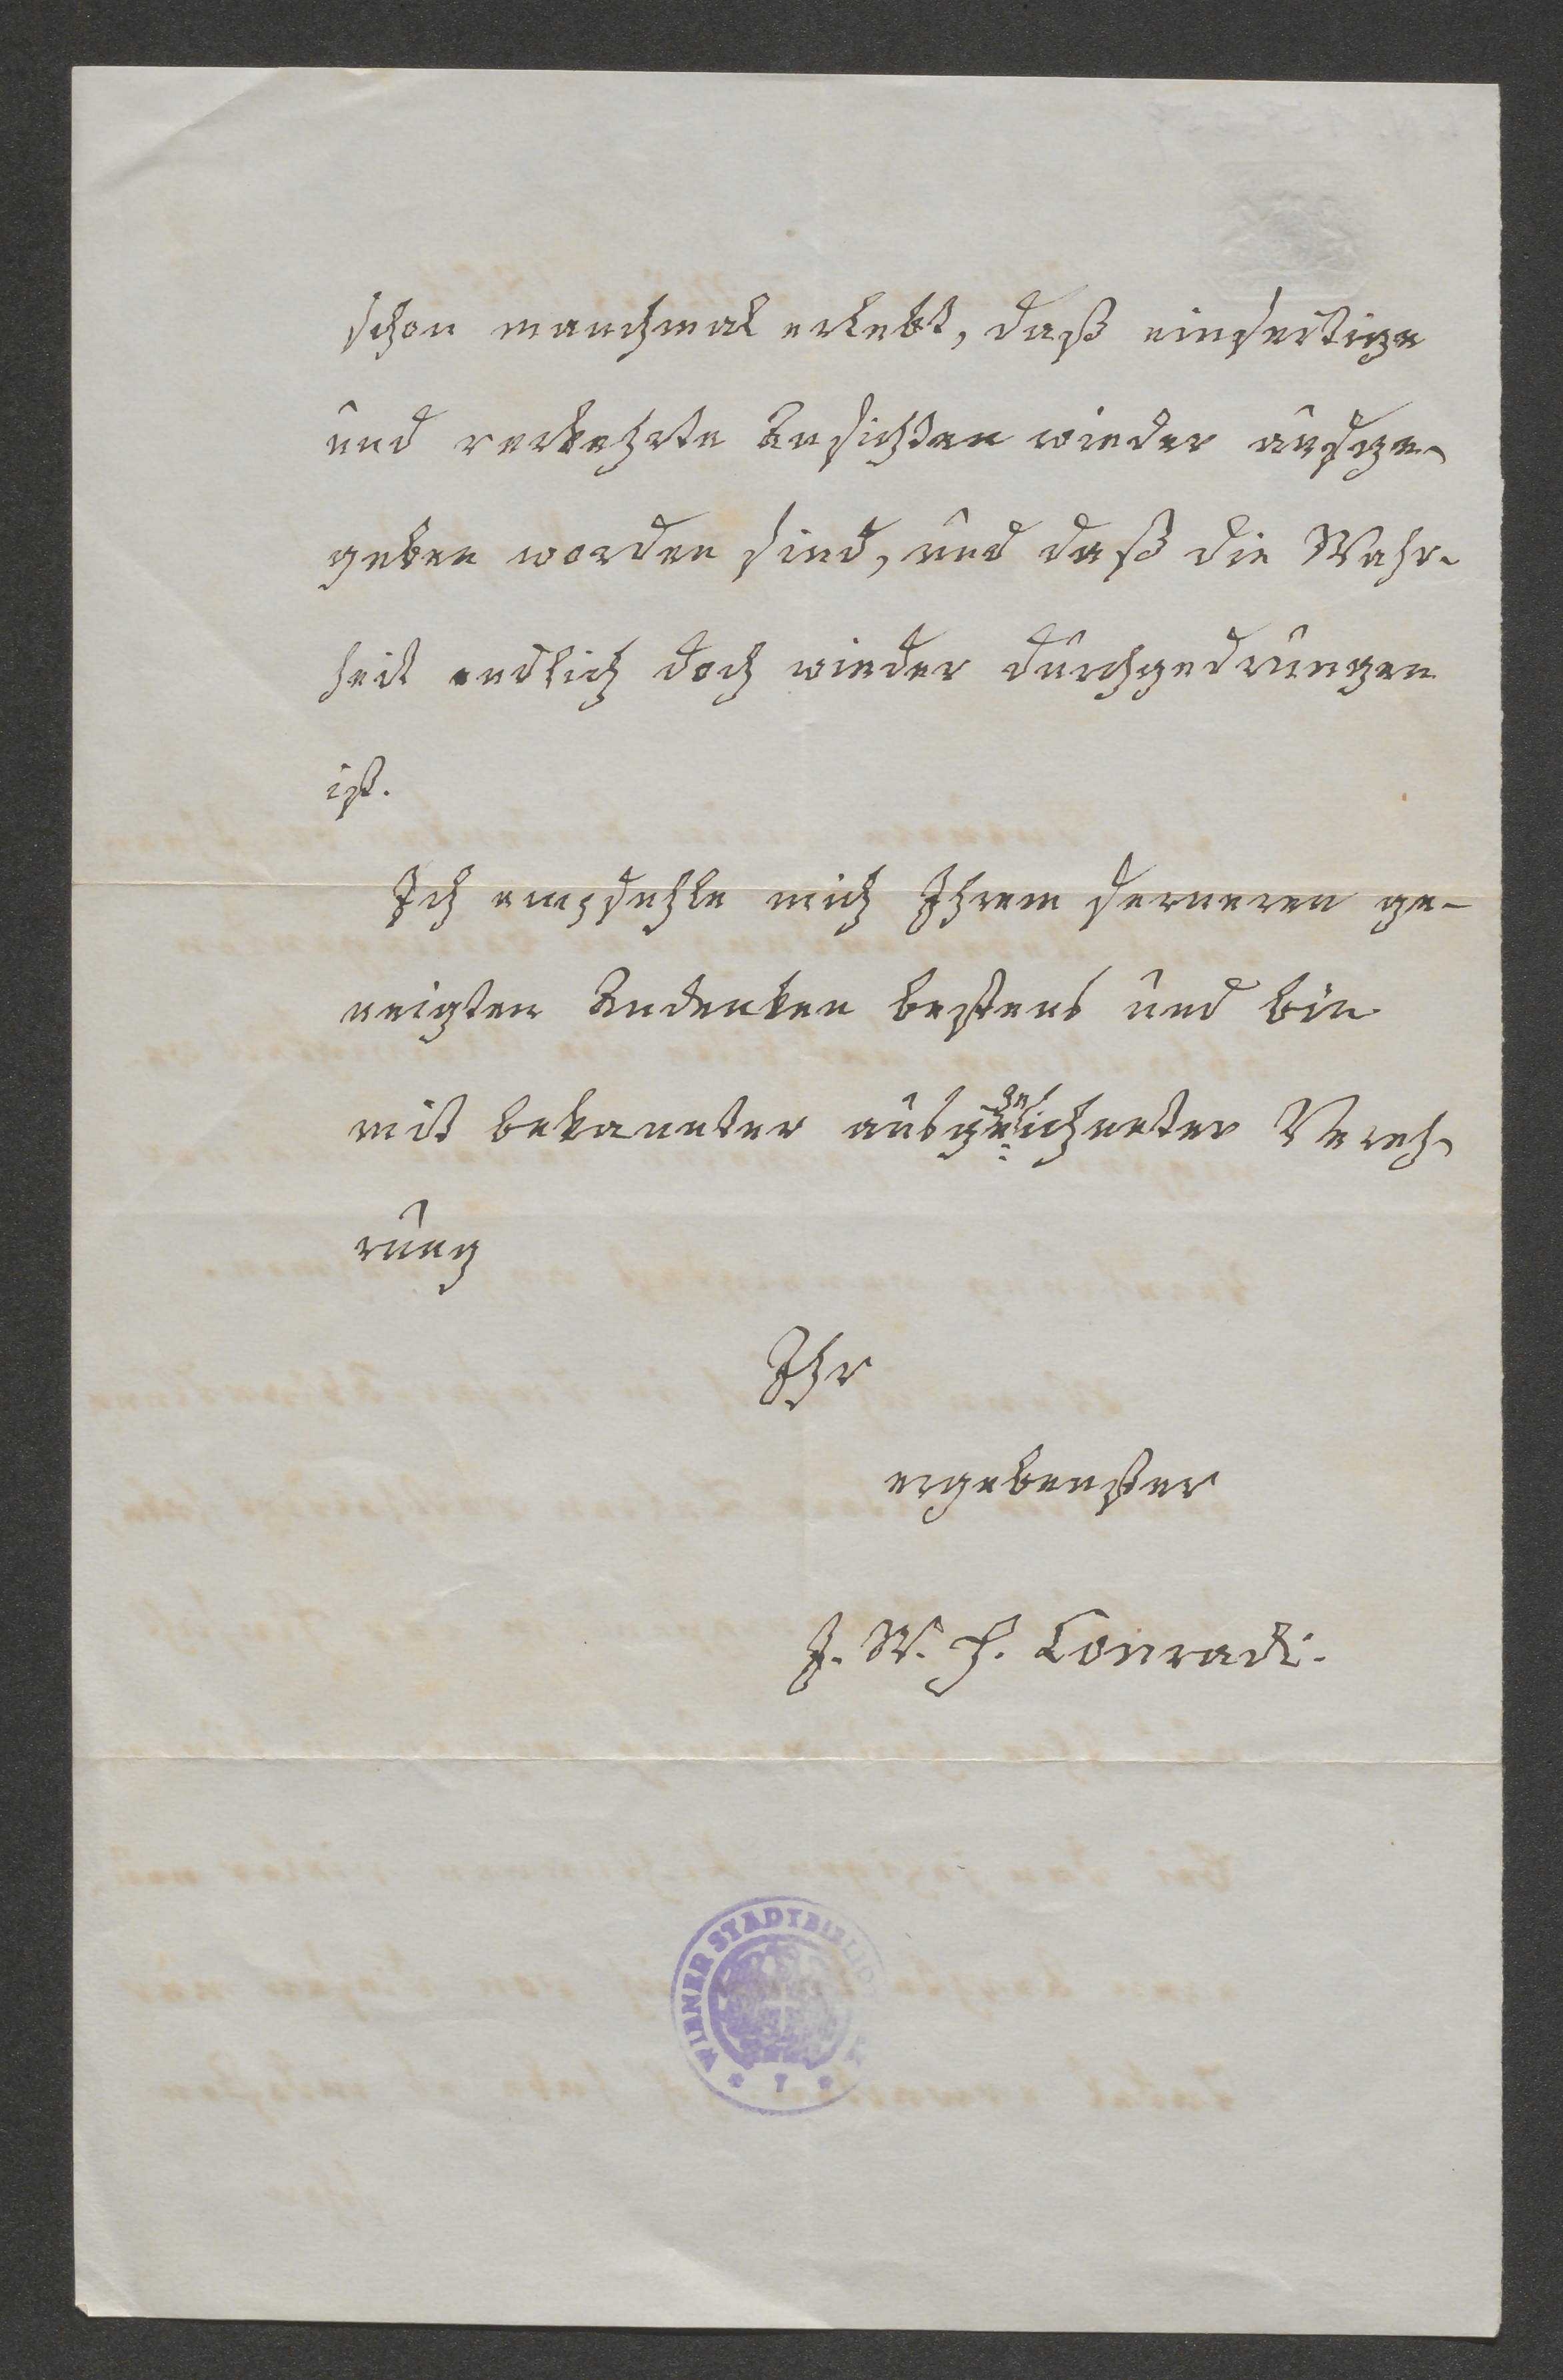 schon manchmal erlebt, daß einseitige
und verkehrte Ansichten wieder aufge-
geben worden sind, und daß die Wahr-
heit endlich doch wieder durchgedrungen
ist.
Ich empfehle mich Ihrem ferneren ge-
neigten Andenken bestens und bin
mit bekannter ausgezeichneter Vereh-
rung
Ihr
ergebenster
J. W. H. Conradi.
WIENER STADTBIBLIO